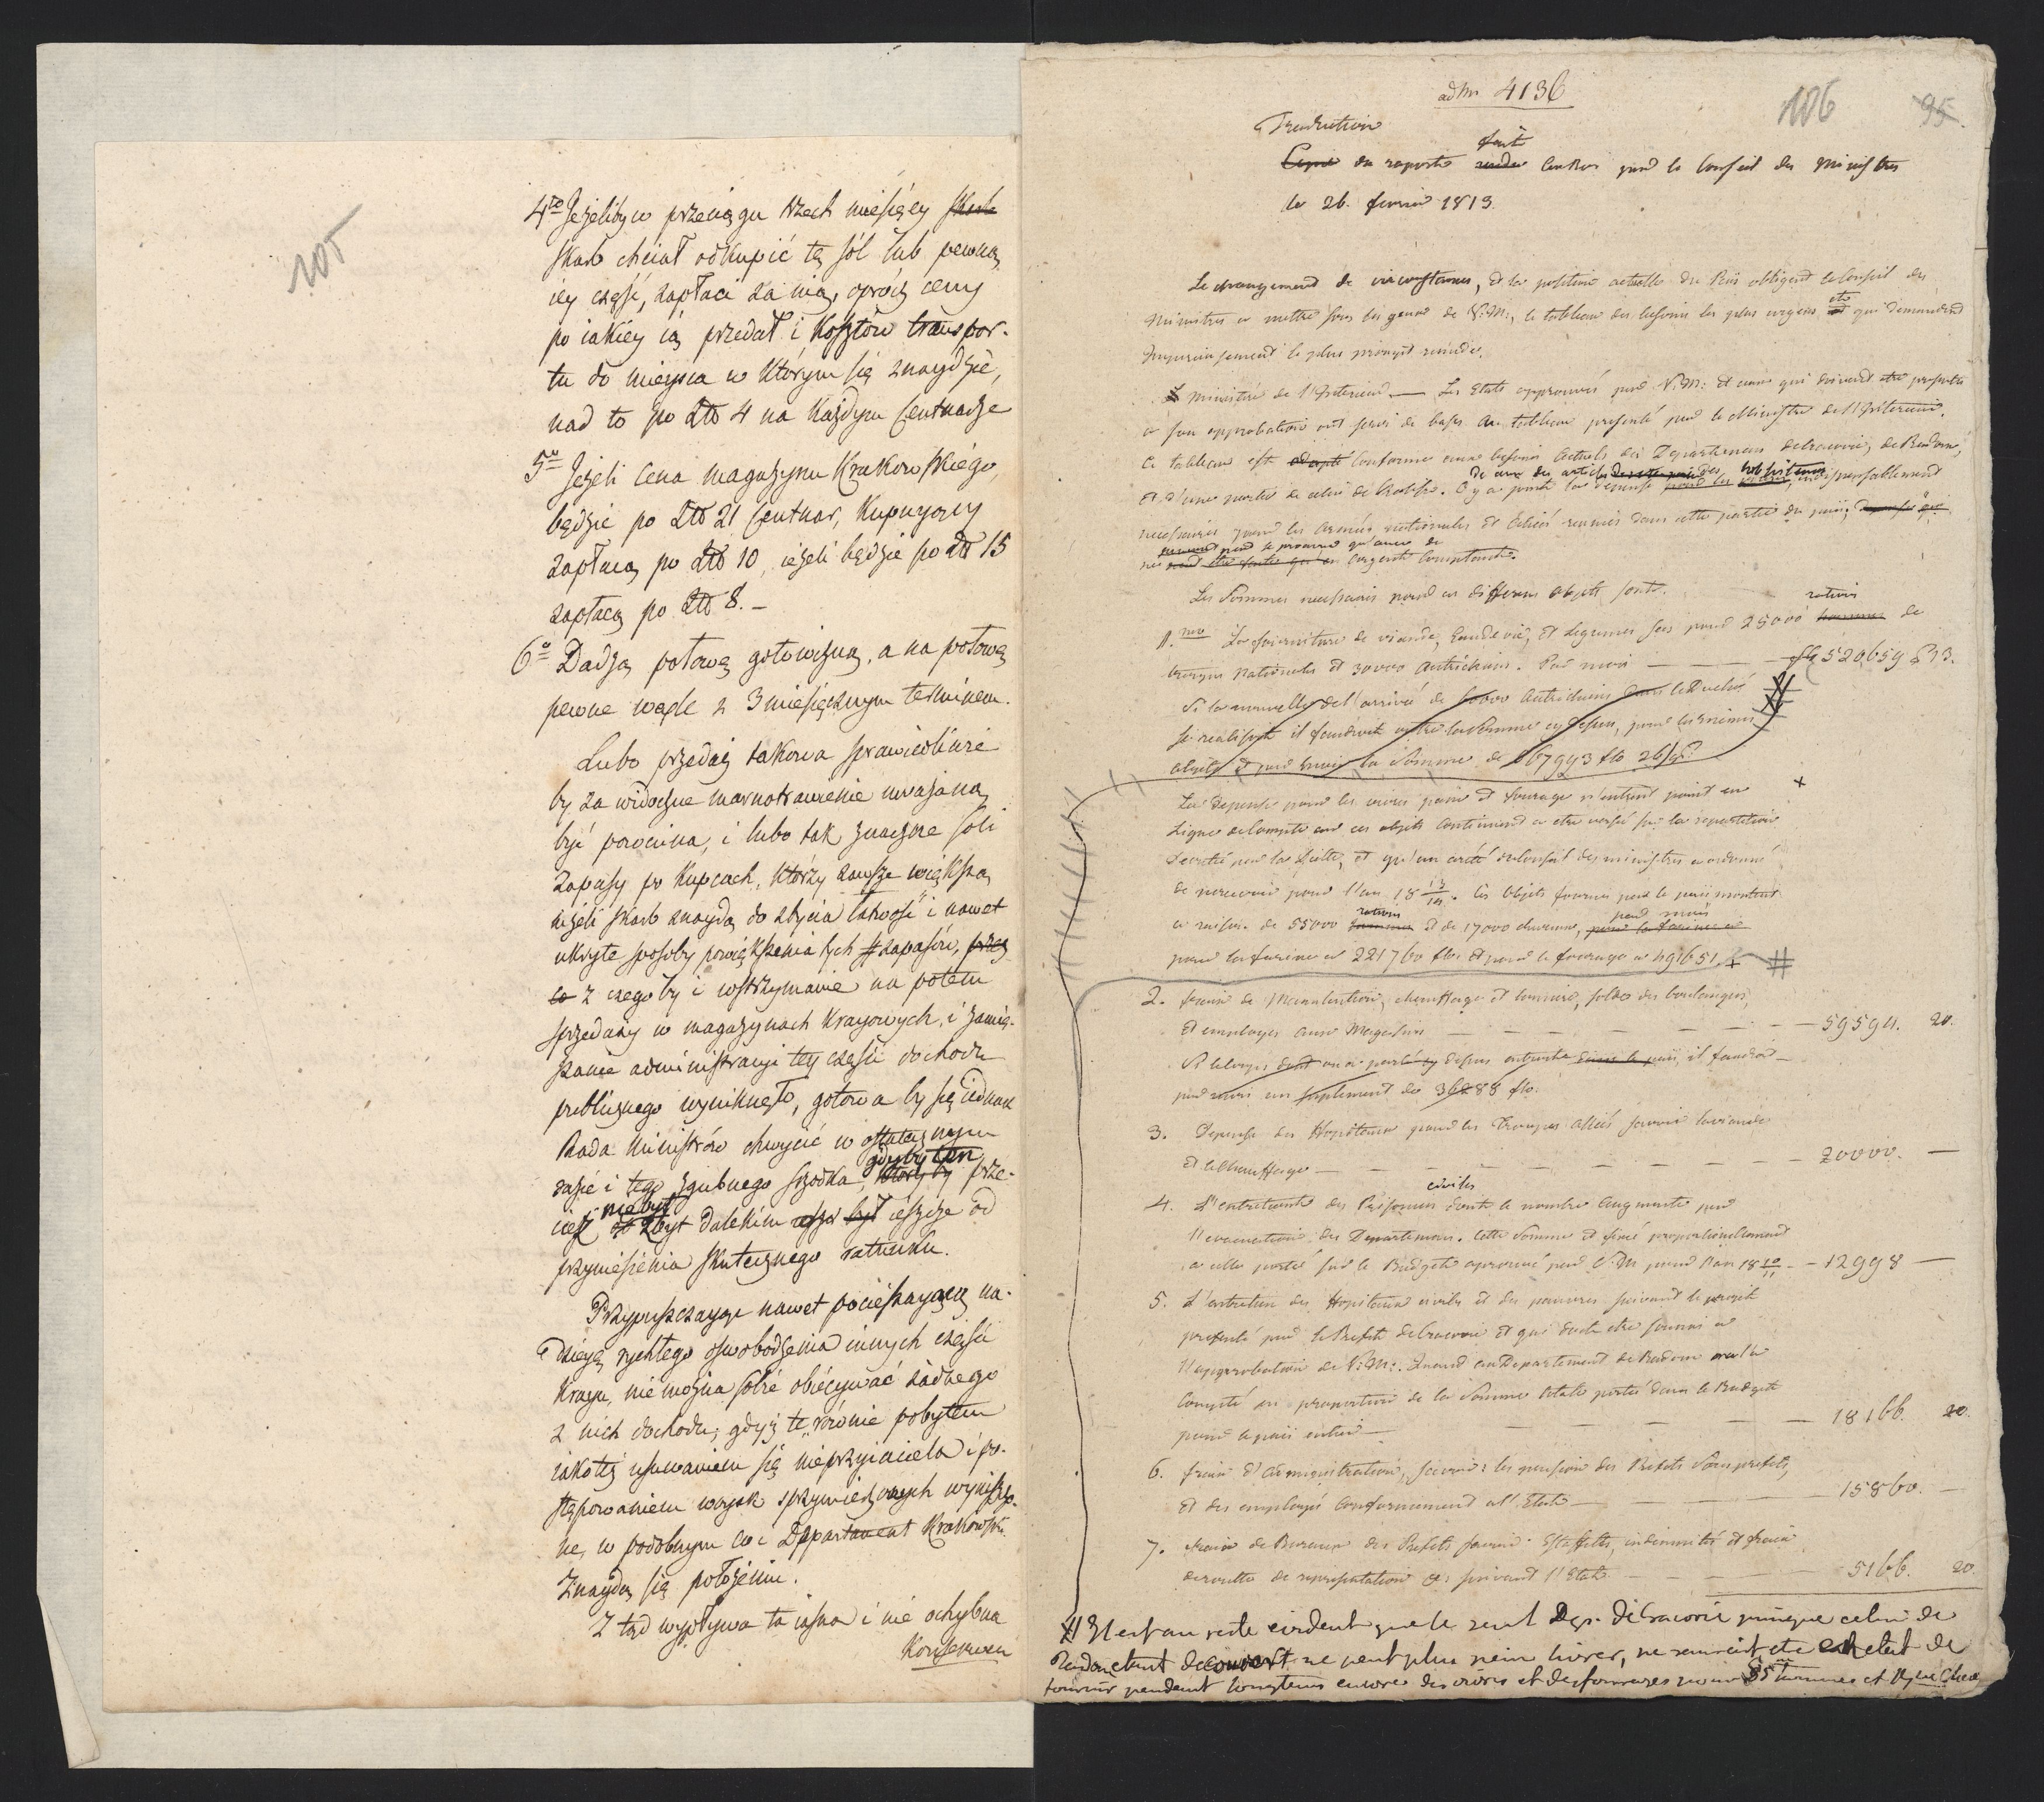 105
4to Jeżeliby w przeciągu trzech miesięcy Skarb
Skarb chciał odkupić tę sól lub pewną
iey część, zapłaci za nią, oprócz ceny
po iakiéy ią przedał i kosztów transpor-
tu do mieysca w którym się znaydzie,
nad to po Złt 4 na każdym Centnarze
5to Jeżeli cena magazynu Krakowskiégo,
będzie po Złt 21 Centnar, kupujący
zapłacą po Złt 10, ieżeli będzie po Złt 15
zapłacą po Złt 8. –
6o Dadzą połowę gotowizną, a na połowę
pewne wexle z 3 miesięcznym terminem.
Lubo przedaż takowa sprawiedliwie
by za widoczne marnotrawienie uważaną
być powinna, i lubo tak znaczne soli
zapasy po kupcach, którzy zawsze większą
niżeli skarb znaydą do zbycia łatwość i nawet
ukryte sposoby powiększenia tych zapasów, przez
co z czego by i wstrzymanie na potem
sprzedaży w magazynach kraiowych, i zamię-
szanie administracyi tey części dochodu
publicznego wyniknęło, gotowa by się iednak
Rada Ministrów chwycić w ostatecznym
gdyby ten
razie i tego zgubnego srzodka, któryby prze-
nie był
cież zbyt dalekim był ieszcze od
przyniesienia skutecznego ratunku.
Przypuszczaiąc nawet pocieszaiącą na-
dzieię rychłego oswobodzenia innych części
kraiu, nie można sobie obiecywać żadnego
z nich dochodu, gdyż te równie pobytem
iakoteż usuwaniem się nieprzyiaciela i po-
stępowaniem woysk sprzymierzonych wyniszczo-
ne, w podobnym co i Departament Krakowski
znaydą się położeniu.
Z tąd wypływa ta iasna i nie ochybna
Konsekwen
ad Nr 4136
106 95.
Traduction
fait
Copie du rapport au Roi par le Conseil des Ministres
le 26. fevrier 1813.
Le changement de circonstances, et la position actuelle du Païs obligent le Conseil des
Ministres a mettre sous les yeux de V.M., le tableau des besoins les plus urgens et qui demandent
le plus prompt remède.
Le ministère de l'Interieur. — Les Etats approuvés par V.M: et ceux qui doivent etre presentés
a son approbation ont servi de bases au tableau presenté par le Ministre de l'Interieur.
Ce tableau est adapté Conforme aux besoins actuels des Départemens de Cracovie, de Radom,
et d'une partie de celui de . On y a porté la depense indispensablement
necessaires pour les armées nationales et Alliés reunies dans cette partie du païs,
argent comptant.
Les Sommes necessaires pour ces differens objets sont.
rations
1.mo La fourniture de viande, Eaudevie, et Legumes secs pour 25000 hommes de
troupes nationales et 30000 Autrichiens. Par mois — — — fl. 520,659 g 13.
Si la nouvelle de l'arrivée de Autrichiens dans le Duché
se realisoit il faudroit outre la somme cy dessus, pour les mêmes
objets et par mois la Somme de 167993 flo 26 g
La Depense pour les vivres pain et fourage n'entrent point en +
Ligne de Compte car ces objets continuent a etre versés sur la repartition
decretée par la Diette, et qu'un arrêté du Conseil des ministres a ordonné
de percevoir pour l'an 18 13/14. Ces objets fournis par le païs montent
rations par mois
a raison de 55000 hommes et de 17000 chevaux,
pour la farine a 221760 flo. et pour le fourage a 491651. + #
2. frais de Manutention, chauffage et lumiere, soldes des boulangers,
et employés aux Magasins — — — — — 59594. 20.
il faudra
par mois un suplement de 36288 flo.
3. Depense des Hopiteaux pour les Troupes alliés savoir la viande
et le Chauffage — — — — — — 20000. —
civiles
4. L'entretient des Prisonns dont le nombre augmente par
l'evacuation des Departemens. Cette Somme est fixée proportionellement
a celle portée sur le Budget aprouvé par V.M pour l'an 18 10/11 — 12998 —
5. L'entretien des Hopiteaux civiles et des pauvres suivant le projet
presenté par le Prefet de Cracovie et qui doit etre soumis a
l'approbation de V:M:. Quand au Departement de Radom
Compté en proportion de la Somme totale portée dans le Budget
pour le païs entier — — — — — 18166. 20.
6. frais d'administration, savoir: les pensions des Prefets Sousprefets,
et des employés Conformement a l'Etat — — — 15860. —
7. frais de Bureaux des Prefets savoir: Estaffettes, indemnités et frais
de route de representation &c: suivant l'Etat — — — 5166. 20.
#) Il est au reste evident que le seul Dep. de Cracovie puisque celui de
Radom étant decouvert ne peut plus rien livrer, ne sauroit etre en etat de
fournir pendant longtems encore des vivres et des fourages pour 55m hommes et 17m Chev